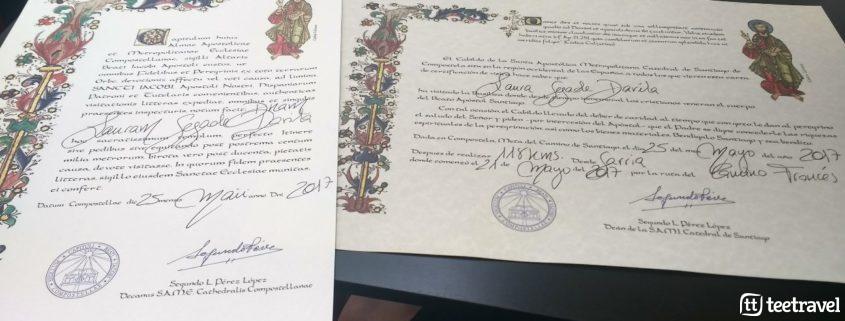 Capitulum huius
Almae Apostolicae
et Metropolitanae Ecclesiae
Compostellanae, sigilli Altaris
Beati Iacobi Apostoli custos, ut
omnibus Fidelibus et Peregrinis ex toto terrarum
Orbe, devotionis affectu vel voti causa, ad limina
SANCTI IACOBI Apostoli Nostri, Hispaniarum
Patroni et Tutelaris convenientibus, authenticas
visitationis litteras expediat, omnibus et singulis
praesentes inspecturis notum facit:
hoc sacratissimum templum, perfecto itinere
sive pedibus sive equitando post postrema centum
milia metrorum, birota vero post ducenta, pietatis
causa, devote visitasse. In quorum fidem praesentes
litteras, sigillo eiusdem Sanctae Ecclesiae munitas,
ei confert.
Datum Compostellae die 25 mensis Maii anno Dni 2017
Segundo L. Pérez López
Decanus S.A.M.E. Cathedralis Compostellanae
El Cabildo de la Santa Apostólica Metropolitana Catedral de Santiago de
Compostela sita en la región occidental de las Españas, a todos los que vieren esta carta
de certificación de visita hace saber que:
ha visitado la Basílica donde desde tiempo inmemorial los cristianos veneran el cuerpo
del Beato Apóstol Santiago.
Con tal ocasión el Cabildo, llevado del deber de caridad, al tiempo que con gozo le da al peregrino
el saludo del Señor y pide, por intercesión del Apóstol, que el Padre se digne concederle las riquezas
espirituales de la peregrinación, así como los bienes materiales. Bendígalo Santiago y sea bendito.
Dada en Compostela, Meta del Camino de Santiago, el día 25 del mes Mayo del año 2017
Después de realizar 118 Kms. Desde Sarria
donde comenzó el 21 de Mayo del 2017 por la ruta del Camino Frances
Segundo L. Pérez López
Deán de la S.A.M.I. Catedral de Santiago
tt teetravel